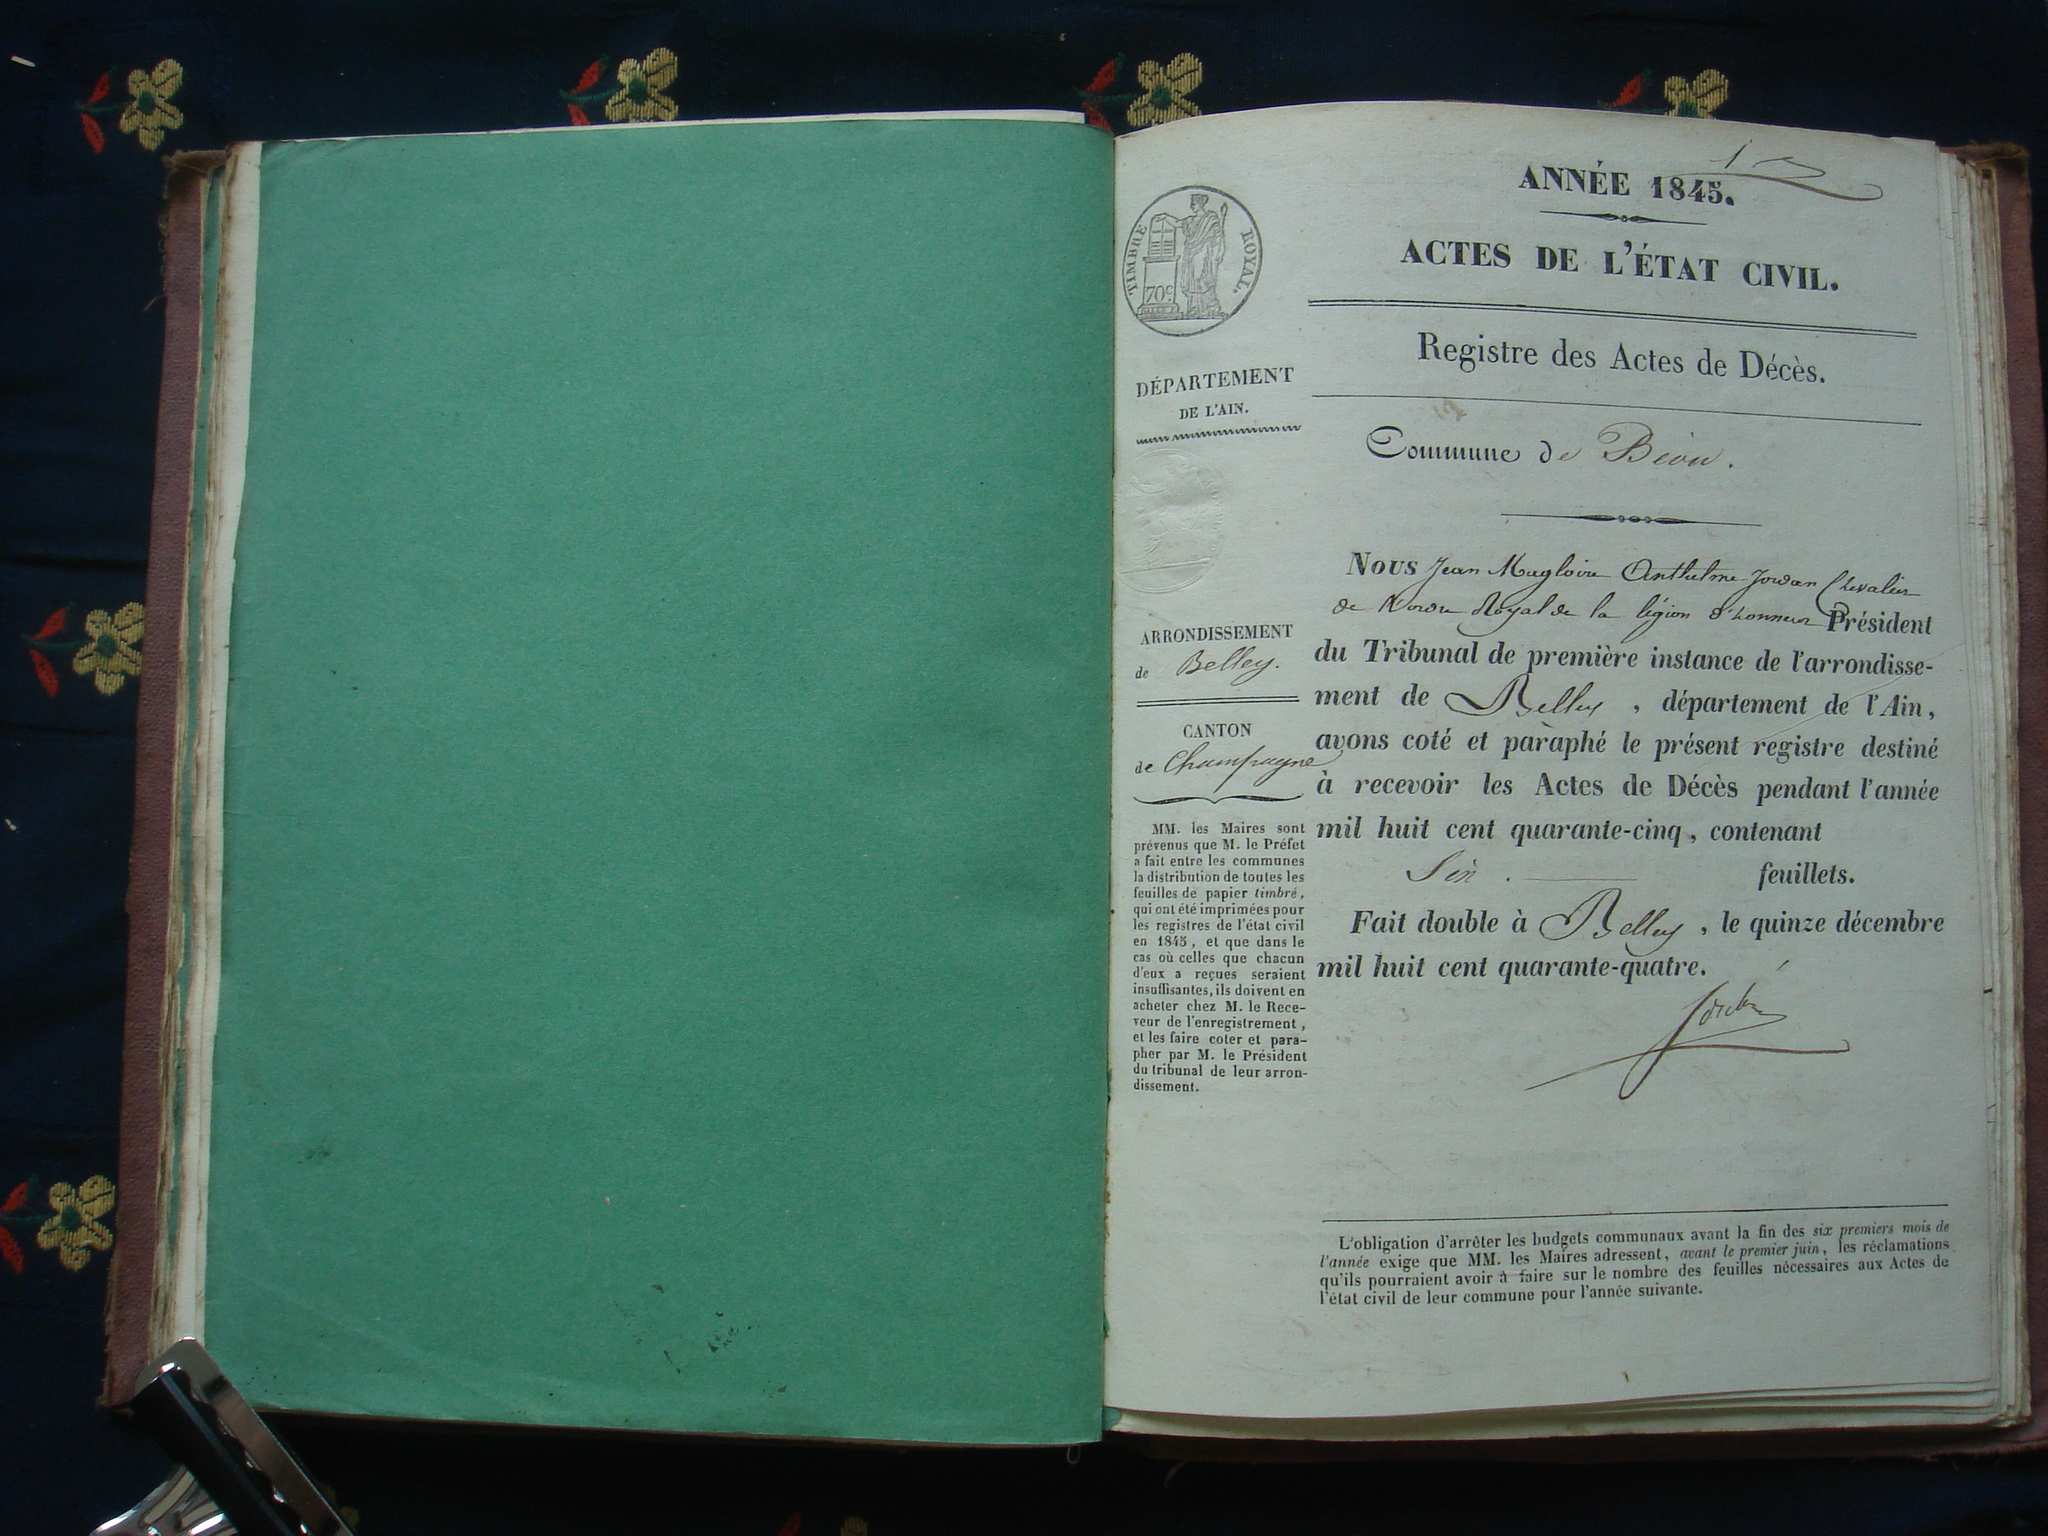 1
ANNÉE 1845.
ACTES DE L'ÉTAT CIVIL.
Registre des Actes de Décès.
Commune de Béon.
TIMBRE ROYAL.
70c
DÉPARTEMENT
DE L'AIN.
ARRONDISSEMENT
de Belley.
CANTON
de Champagne
MM. les Maires sont
prévenus que M. le Préfet
a fait entre les communes
la distribution de toutes les
feuilles de papier timbré,
qui ont été imprimées pour
les registres de l'état civil
en 1845, et que dans le
cas où celles que chacun
d'eux a reçues seraient
insuffisantes, ils doivent en
acheter chez M. le Rece-
veur de l'enregistrement,
et les faire coter et para-
pher par M. le Président
du tribunal de leur arron-
dissement.
Nous Jean Magloire Anthelme Jordan Chevalier
de l'ordre Royal de la légion d'honneur Président
du Tribunal de première instance de l'arrondisse-
ment de Belley, département de l'Ain,
avons coté et paraphé le présent registre destiné
à recevoir les Actes de Décès pendant l'année
mil huit cent quarante-cinq, contenant
Six feuillets.
Fait double à Belley, le quinze décembre
mil huit cent quarante-quatre.
L'obligation d'arrêter les budgets communaux avant la fin des six premiers mois de
l'année exige que MM. les Maires adressent, avant le premier juin, les réclamations
qu'ils pourraient avoir à faire sur le nombre des feuilles nécessaires aux Actes de
l'état civil de leur commune pour l'année suivante.